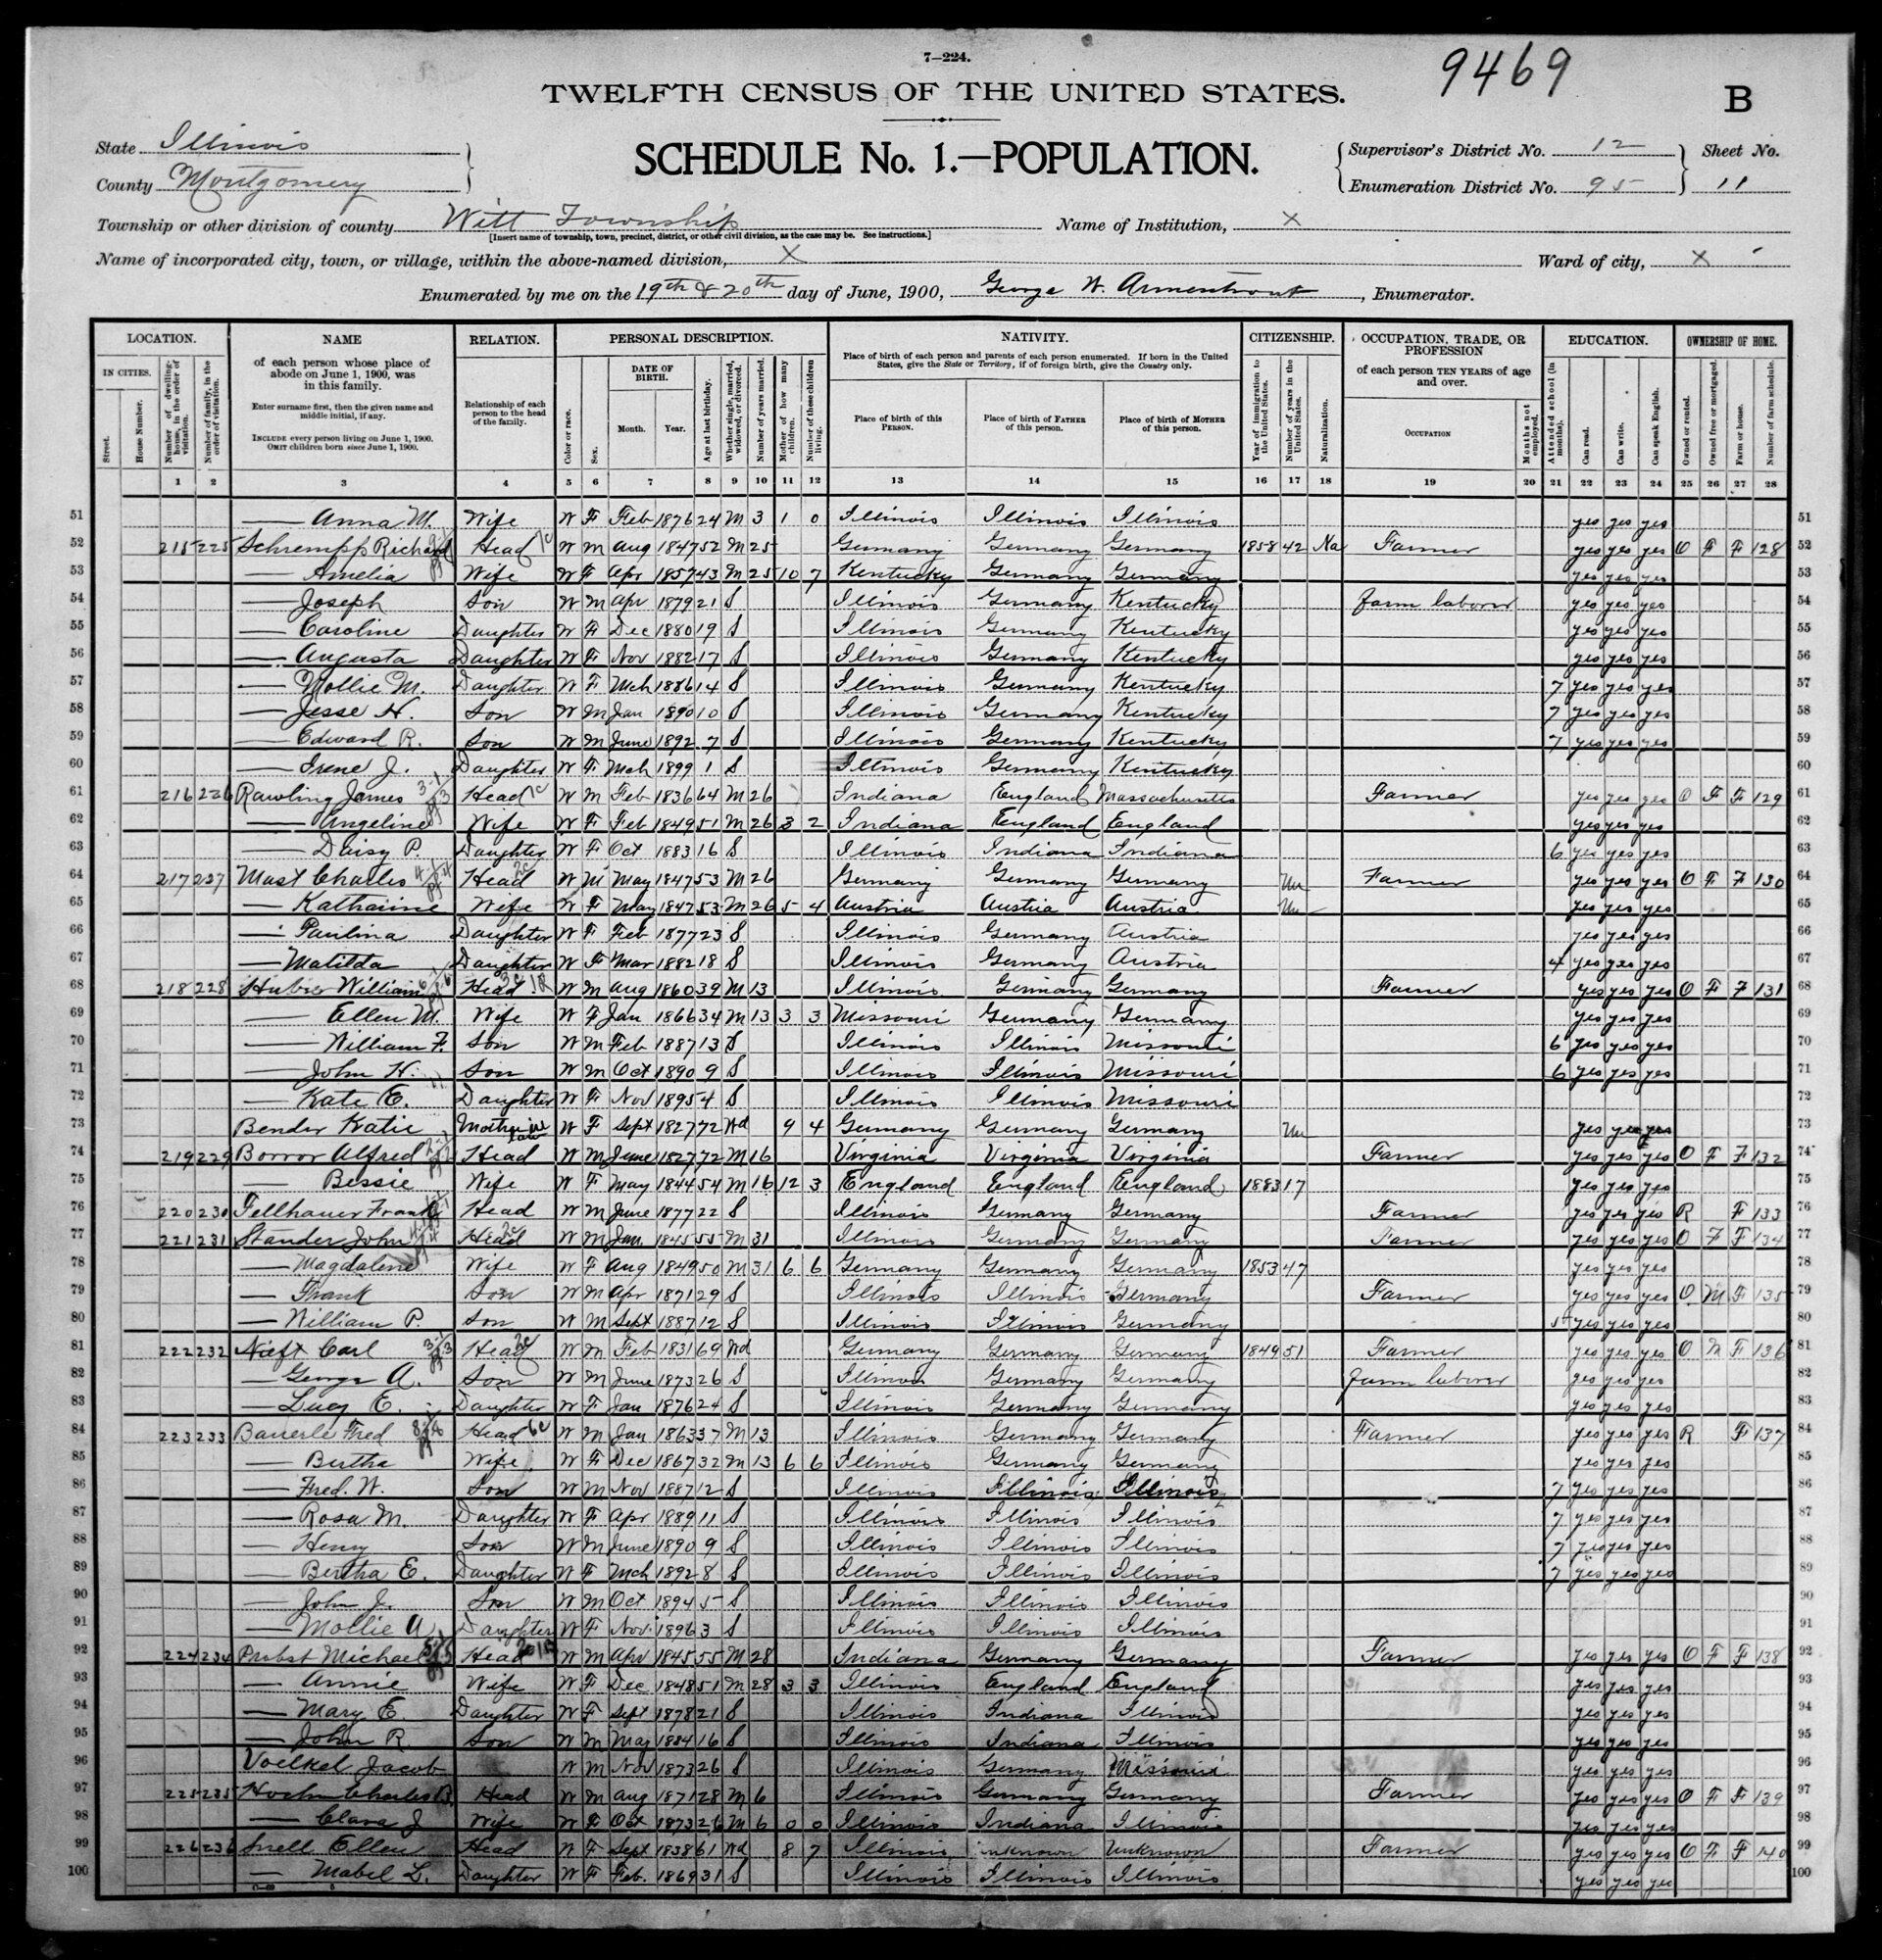 7—224.
9469
TWELFTH CENSUS OF THE UNITED STATES.
B
State Illinois
County Montgomery
SCHEDULE No. 1.—POPULATION.
Supervisor's District No. 12
Enumeration District No. 95
Sheet No. 11
Township or other division of county Witt Township
[Insert name of township, town, precinct, district, or other civil division, as the case may be. See instructions.]
Name of Institution, X
Name of incorporated city, town, or village, within the above-named division, X
Ward of city, X
Enumerated by me on the 19th & 20th day of June, 1900, George W. Armentrout, Enumerator.
LOCATION. NAME RELATION. PERSONAL DESCRIPTION. NATIVITY. CITIZENSHIP. OCCUPATION, TRADE, OR PROFESSION EDUCATION. OWNERSHIP OF HOME.
IN CITIES.
Street.
House Number.
Number of dwelling-house, in the order of visitation.
Number of family, in the order of visitation.
of each person whose place of abode on June 1, 1900, was in this family.
Enter surname first, then the given name and middle initial, if any.
INCLUDE every person living on June 1, 1900. OMIT children born since June 1, 1900.
Relationship of each person to the head of the family.
Color or race.
Sex.
DATE OF BIRTH.
Month. Year.
Age at last birthday.
Whether single, married, widowed, or divorced.
Number of years married.
Mother of how many children.
Number of these children living.
Place of birth of each person and parents of each person enumerated. If born in the United States, give the State or Territory, if of foreign birth, give the Country only.
Place of birth of this PERSON.
Place of birth of FATHER of this person.
Place of birth of MOTHER of this person.
Year of immigration to the United States.
Number of years in the United States.
Naturalization.
of each person TEN YEARS of age and over.
OCCUPATION
Months not employed.
Attended school (in months).
Can read.
Can write.
Can speak English.
Owned or rented.
Owned free or mortgaged.
Farm or house.
Number of farm schedule.
1 2 3 4 5 6 7 8 9 10 11 12 13 14 15 16 17 18 19 20 21 22 23 24 25 26 27 28
51 — Anna M. Wife W F Feb 1876 24 M 3 1 0 Illinois Illinois Illinois yes yes yes 51
52 215 225 Schrempp Richard Head W M Aug 1847 52 M 25 Germany Germany Germany 1858 42 Na Farmer yes yes yes O F F 128 52
53 — Amelia Wife W F Apr 1857 43 M 25 10 7 Kentucky Germany Germany yes yes yes 53
54 — Joseph Son W M Apr 1879 21 S Illinois Germany Kentucky Farm laborer yes yes yes 54
55 — Caroline Daughter W F Dec 1880 19 S Illinois Germany Kentucky yes yes yes 55
56 — Augusta Daughter W F Nov 1882 17 S Illinois Germany Kentucky yes yes yes 56
57 — Mollie M. Daughter W F Mch 1886 14 S Illinois Germany Kentucky 7 yes yes yes 57
58 — Jesse H. Son W M Jan 1890 10 S Illinois Germany Kentucky 7 yes yes yes 58
59 — Edward R. Son W M June 1892 7 S Illinois Germany Kentucky 7 yes yes yes 59
60 — Irene J. Daughter W F Mch 1899 1 S Illinois Germany Kentucky 60
61 216 226 Rawling James Head W M Feb 1836 64 M 26 Indiana England Massachusetts Farmer yes yes yes O F F 129 61
62 — Angeline Wife W F Feb 1849 51 M 26 3 2 Indiana England England yes yes yes 62
63 — Daisy P. Daughter W F Oct 1883 16 S Illinois Indiana Indiana 6 yes yes yes 63
64 217 227 Mast Charles Head W M May 1847 53 M 26 Germany Germany Germany Un Farmer yes yes yes O F F 130 64
65 — Katharine Wife W F May 1847 53 M 26 5 4 Austria Austria Austria Un yes yes yes 65
66 — Paulina Daughter W F Feb 1877 23 S Illinois Germany Austria yes yes yes 66
67 — Matilda Daughter W F Mar 1882 18 S Illinois Germany Austria 4 yes yes yes 67
68 218 228 Huber William Head W M Aug 1860 39 M 13 Illinois Germany Germany Farmer yes yes yes O F F 131 68
69 — Ellen M. Wife W F Jan 1866 34 M 13 3 3 Missouri Germany Germany yes yes yes 69
70 — William F. Son W M Feb 1887 13 S Illinois Illinois Missouri 6 yes yes yes 70
71 — John H. Son W M Oct 1890 9 S Illinois Illinois Missouri 6 yes yes yes 71
72 — Kate E. Daughter W F Nov 1895 4 S Illinois Illinois Missouri 72
73 Bender Katie Mother in law W F Sept 1827 72 Wd 9 4 Germany Germany Germany Un yes yes yes 73
74 219 229 Borror Alfred Head W M June 1827 72 M 16 Virginia Virginia Virginia Farmer yes yes yes O F F 132 74
75 — Bessie Wife W F May 1844 54 M 16 12 3 England England England 1883 17 yes yes yes 75
76 220 230 Fellhauer Frank Head W M June 1877 22 S Illinois Germany Germany Farmer yes yes yes R F 133 76
77 221 231 Stander John Head W M Jan. 1845 55 M 31 Illinois Germany Germany Farmer yes yes yes O F F 134 77
78 — Magdalene Wife W F Aug 1849 50 M 31 6 6 Germany Germany Germany 1853 47 yes yes yes 78
79 — Frank Son W M Apr 1871 29 S Illinois Illinois Germany Farmer yes yes yes O M F 135 79
80 — William P. Son W M Sept 1887 12 S Illinois Illinois Germany 5 yes yes yes 80
81 222 232 Nieft Carl Head W M Feb 1831 69 Wd Germany Germany Germany 1849 51 Farmer yes yes yes O M F 136 81
82 — George A. Son W M June 1873 26 S Illinois Germany Germany Farm laborer yes yes yes 82
83 — Lucy E. Daughter W F Jan 1876 24 S Illinois Germany Germany yes yes yes 83
84 223 233 Bauerle Fred Head W M Jan 1863 37 M 13 Illinois Germany Germany Farmer yes yes yes R F 137 84
85 — Bertha Wife W F Dec 1867 32 M 13 6 6 Illinois Germany Germany yes yes yes 85
86 — Fred. W. Son W M Nov 1887 12 S Illinois Illinois Illinois 7 yes yes yes 86
87 — Rosa M. Daughter W F Apr 1889 11 S Illinois Illinois Illinois 7 yes yes yes 87
88 — Henry Son W M June 1890 9 S Illinois Illinois Illinois 7 yes yes yes 88
89 — Bertha E. Daughter W F Mch 1892 8 S Illinois Illinois Illinois 7 yes yes yes 89
90 — John J. Son W M Oct 1894 5 S Illinois Illinois Illinois 90
91 — Mollie A. Daughter W F Nov. 1896 3 S Illinois Illinois Illinois 91
92 224 234 Probst Michael Head W M Apr 1845 55 M 28 Indiana Germany Germany Farmer yes yes yes O F F 138 92
93 — Annie Wife W F Dec 1848 51 M 28 3 3 Illinois England England yes yes yes 93
94 — Mary E. Daughter W F Sept 1878 21 S Illinois Indiana Illinois yes yes yes 94
95 — John R. Son W M May 1884 16 S Illinois Indiana Illinois yes yes yes 95
96 Voelkel Jacob W M Nov 1873 26 S Illinois Germany Missouri yes yes yes 96
97 225 235 Charles B. Head W M Aug 1871 28 M 6 Illinois Germany Germany Farmer yes yes yes O F F 139 97
98 — Clara J Wife W F Oct 1873 26 M 6 0 0 Illinois Indiana Illinois yes yes yes 98
99 226 236 Snell Ellen Head W F Sept 1838 61 Wd 8 7 Illinois unknown Unknown Farmer yes yes yes O F F 140 99
100 — Mabel L. Daughter W F Feb. 1869 31 S Illinois Illinois Illinois yes yes yes 100